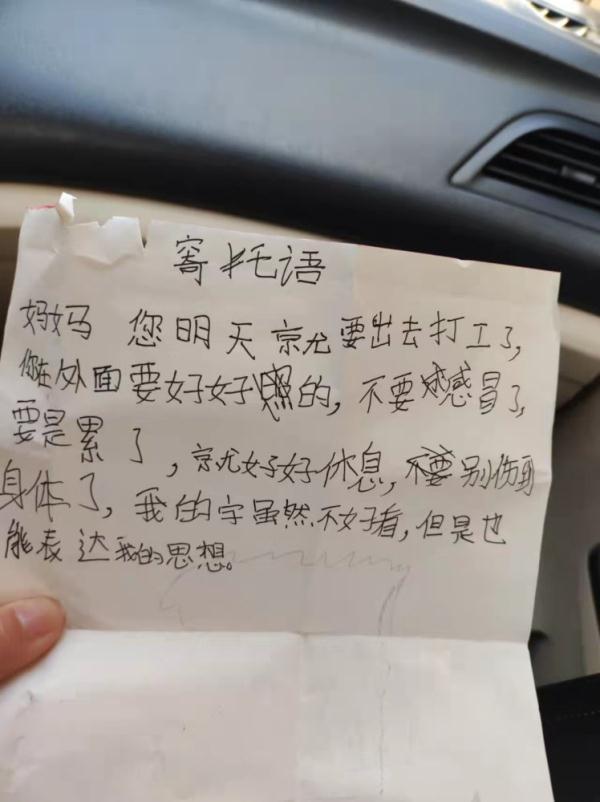 寄托语
妈妈 您明天京尤要出去打工了,
你在外面要好好照的,不要感冒了,
要是累了,京尤好好休息,不要别伤到
身体了,我的字虽然不好看,但是也
能表达我的思想。